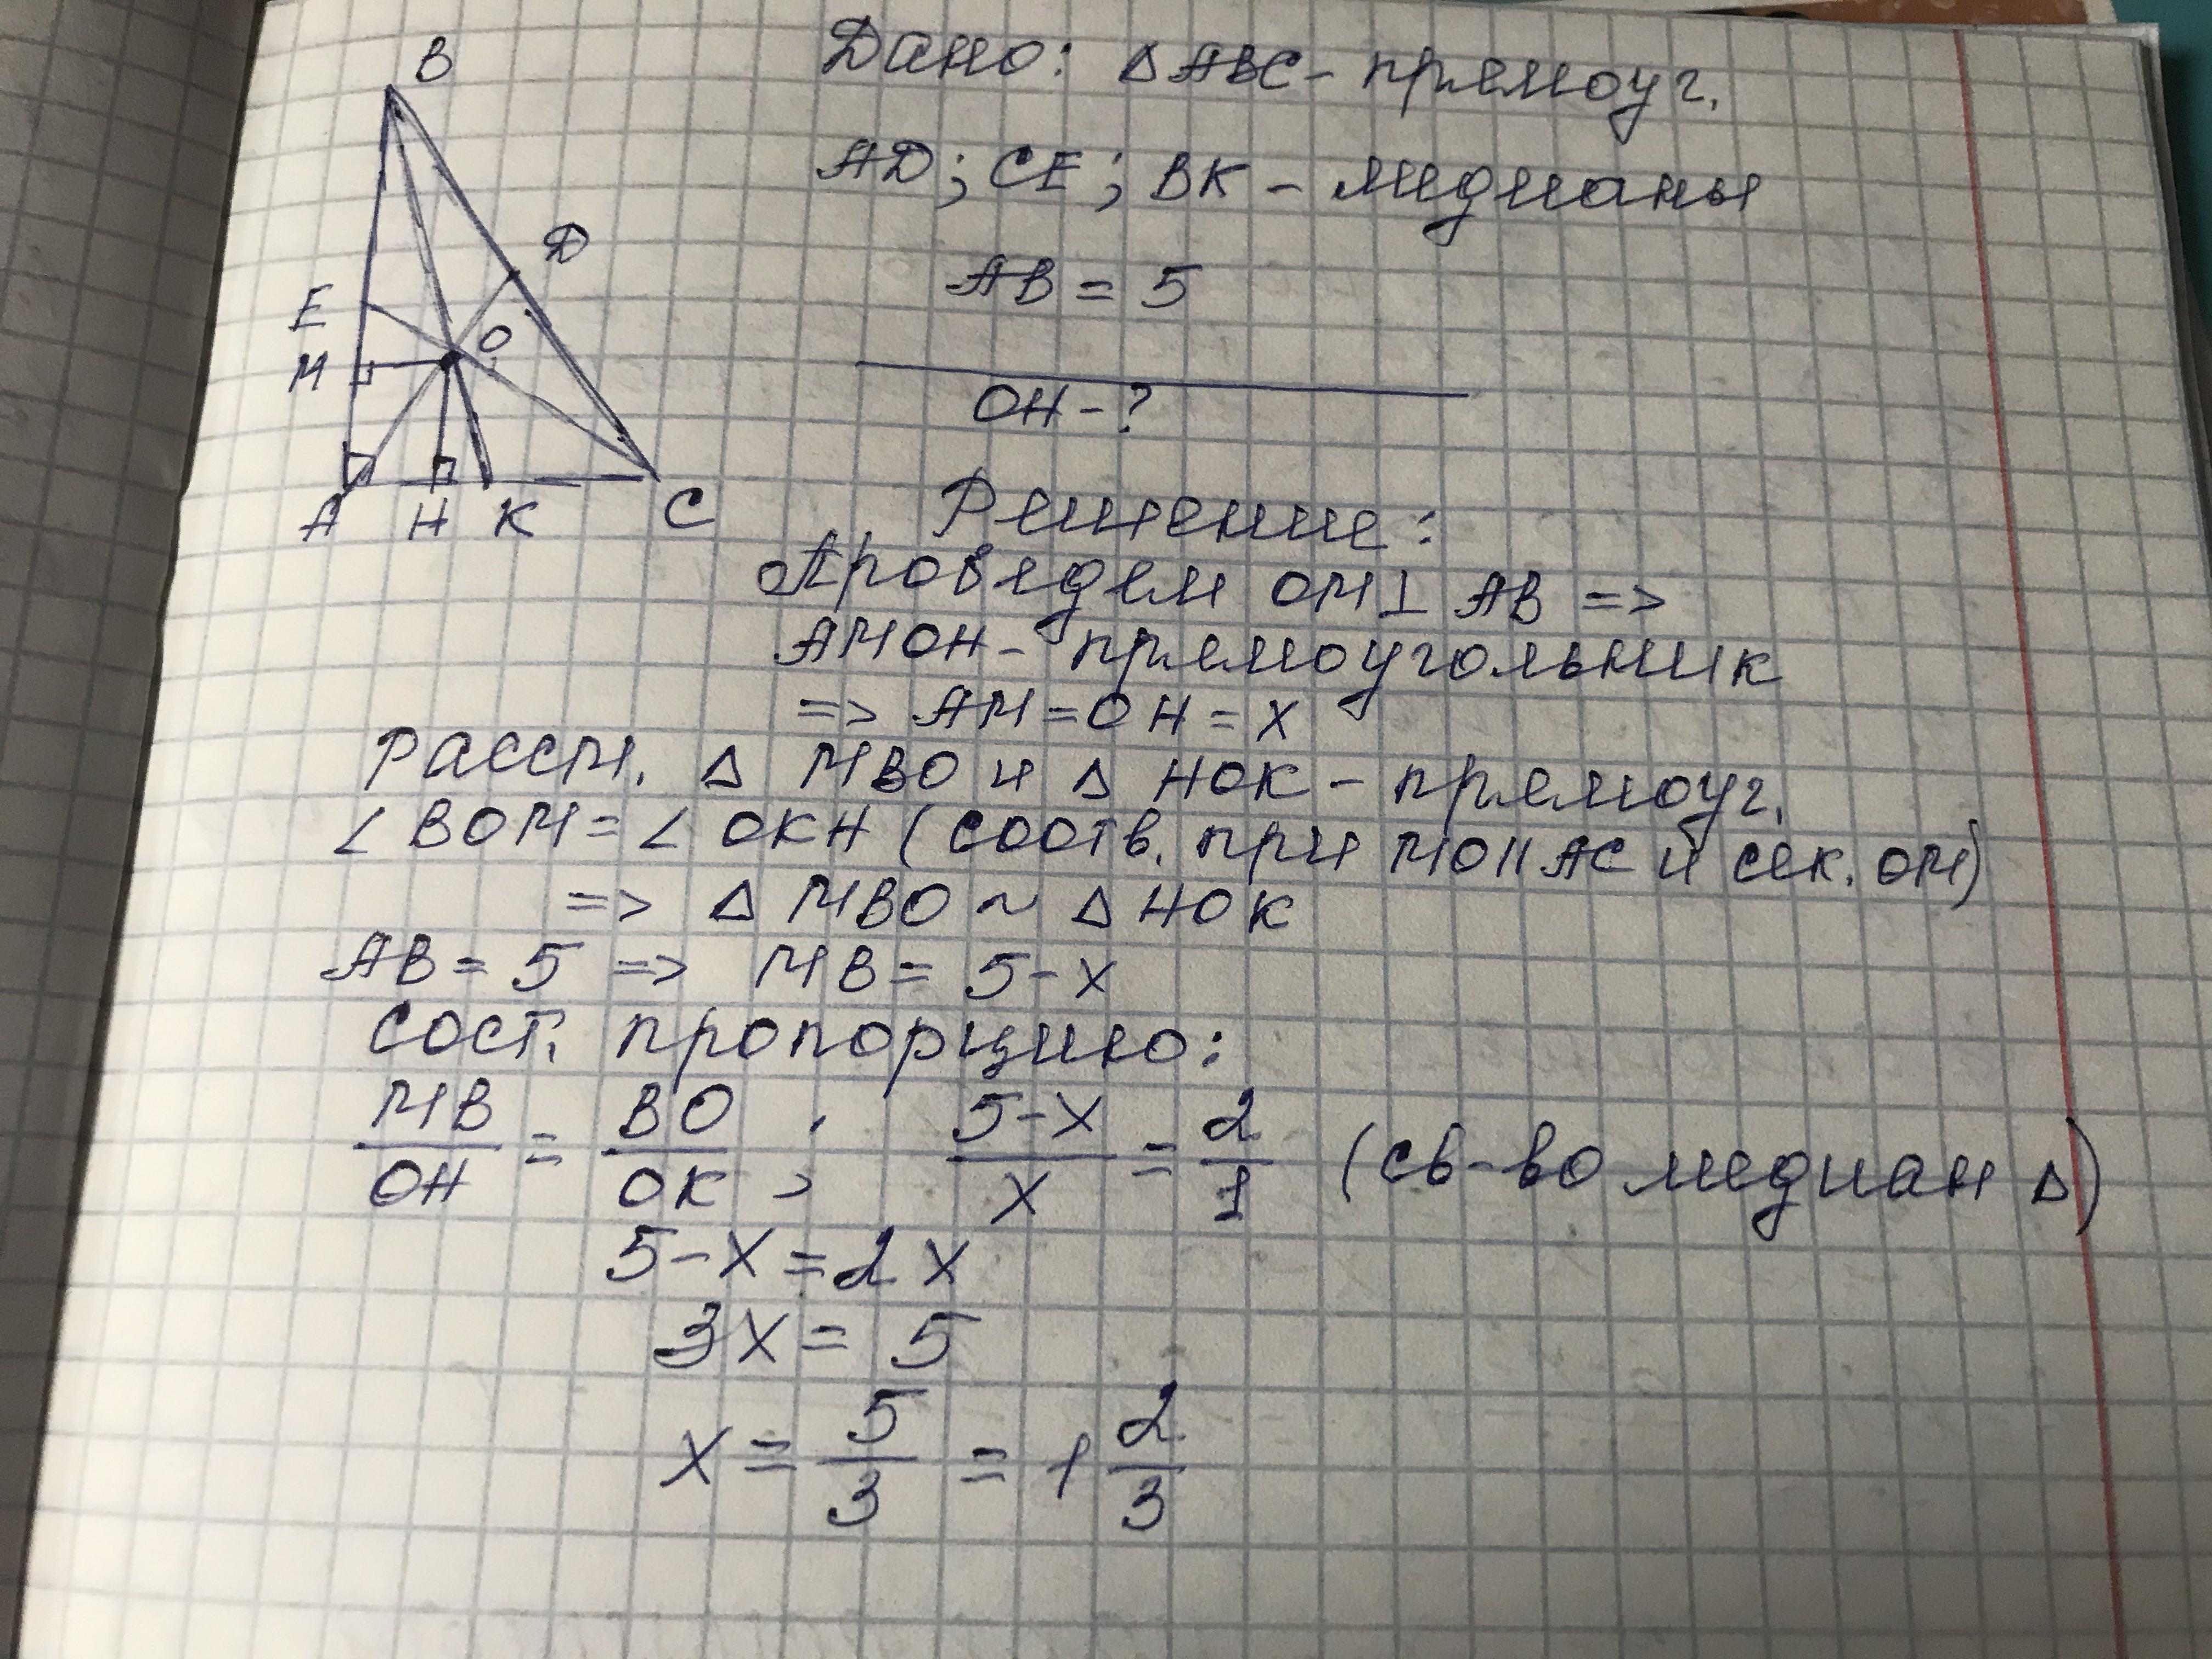 Дано: △ABC - прямоуг.
AD; CE; BK - медианы
AB = 5
OH - ?
B
D
E
O
M
A
H
K
C
Решение:
Проведем OM⊥AB =>
AMOH - прямоугольник
=> AM = OH = x
Рассм. △ MBO и △ HOK - прямоуг.
∠BOM = ∠OKH (соотв. при MO||AC и сек. OM)
=> △ MBO ~ △ HOK
AB = 5 => MB = 5-x
Сост. пропорцию:
MB/OH = BO/OK ; 5-x/x = 2/1 (св-во медиан △)
5-x=2x
3x = 5
x = 5/3 = 1 2/3